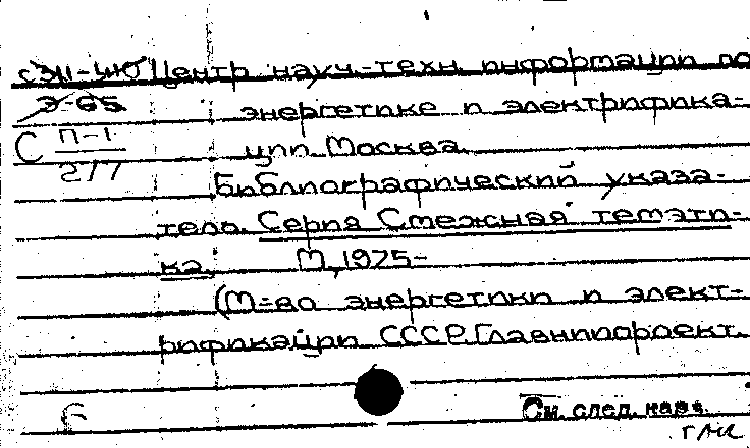 Центр науч.-техн. информации по
Э-65 энергетике и электрифика-
С П-1 ции. Москва.
277 Библиографический указа-
тель. Серия Смежная темати-
ка. М, 1975-
(М-во энергетики и элект-
рификации СССР. Главниипроект.
См. след. карт.